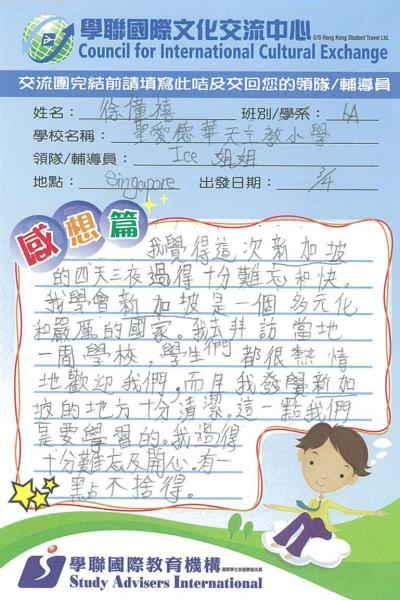 學聯國際文化交流中心 G/B Hong Kong Student Travel Ltd.
Council for International Cultural Exchange
交流團完結前請填寫此咭及交回您的領隊/輔導員
姓名：徐僖禧 班別/學系：6A
學校名稱：聖愛德華天主教小學
領隊/輔導員：Ice 姐姐
地點：Singapore 出發日期：3/4
感想篇
我覺得這次新加坡
的四天三夜過得十分難忘和快。
我學會新加坡是一個多元化
和嚴厲的國家。我去拜訪當地
一間學校，學生們都很熱情
地歡迎我們，而月我發學新加
坡的地方十分清潔。這一點我們
是要學習的。我過得
十分難忘及開心。有一
點不捨得。
學聯國際教育機構
Study Advisers International